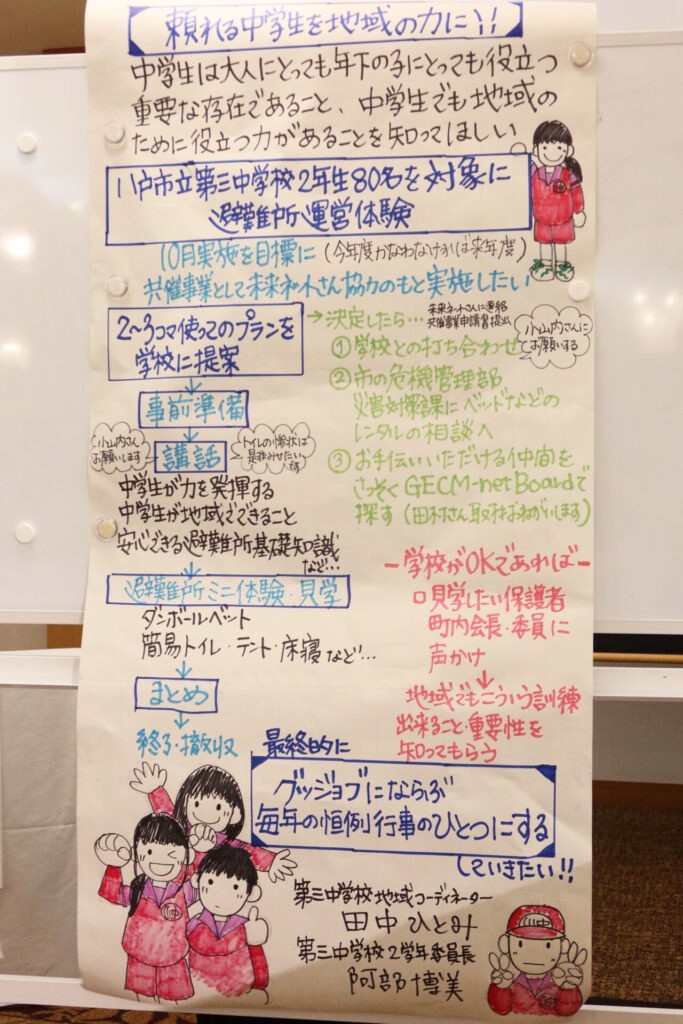 頼れる中学生を地域の力に!!
中学生は大人にとっても年下の子にとっても役立つ
重要な存在であること、中学生でも地域の
ために役立つ力があることを知ってほしい
八戸市立第三中学校2年生80名を対象に
避難所運営体験
10月実施を目標に(今年度かなわなければ来年度)
共催事業として未来ネットさん協力のもと実施したい
2〜3コマ使ってのプランを
学校に提案
↓
事前準備
↓
小山内さん
お願いします
講話
トイレの惨状は
是非みせたい
です
中学生が力を発揮する
中学生が地域でできること
安心できる避難所基礎知識
など…
避難所ミニ体験・見学
ダンボールベット
簡易トイレ・テント・床寝など…
↓
まとめ
↓
終了・撤収
→決定したら…
未来ネットさんに連絡
共催事業申請書提出
①学校との打ち合わせ
小山内さんに
お願いする
②市の危機管理部
災害対策課にベッドなどの
レンタルの相談へ
③お手伝いいただける仲間を
さっそくGECM-net Boardで
探す(田村さん取材おねがいします)
ー学校がOKであればー
□見学したい保護者
町内会長・委員に
声かけ
↓
地域でもこういう訓練
出来ること・重要性を
知ってもらう
最終的に
グッジョブにならぶ
毎年の恒例行事のひとつにする
していきたい!!
第三中学校地域コーディネーター
田中ひとみ
第三中学校2学年委員長
阿部博美